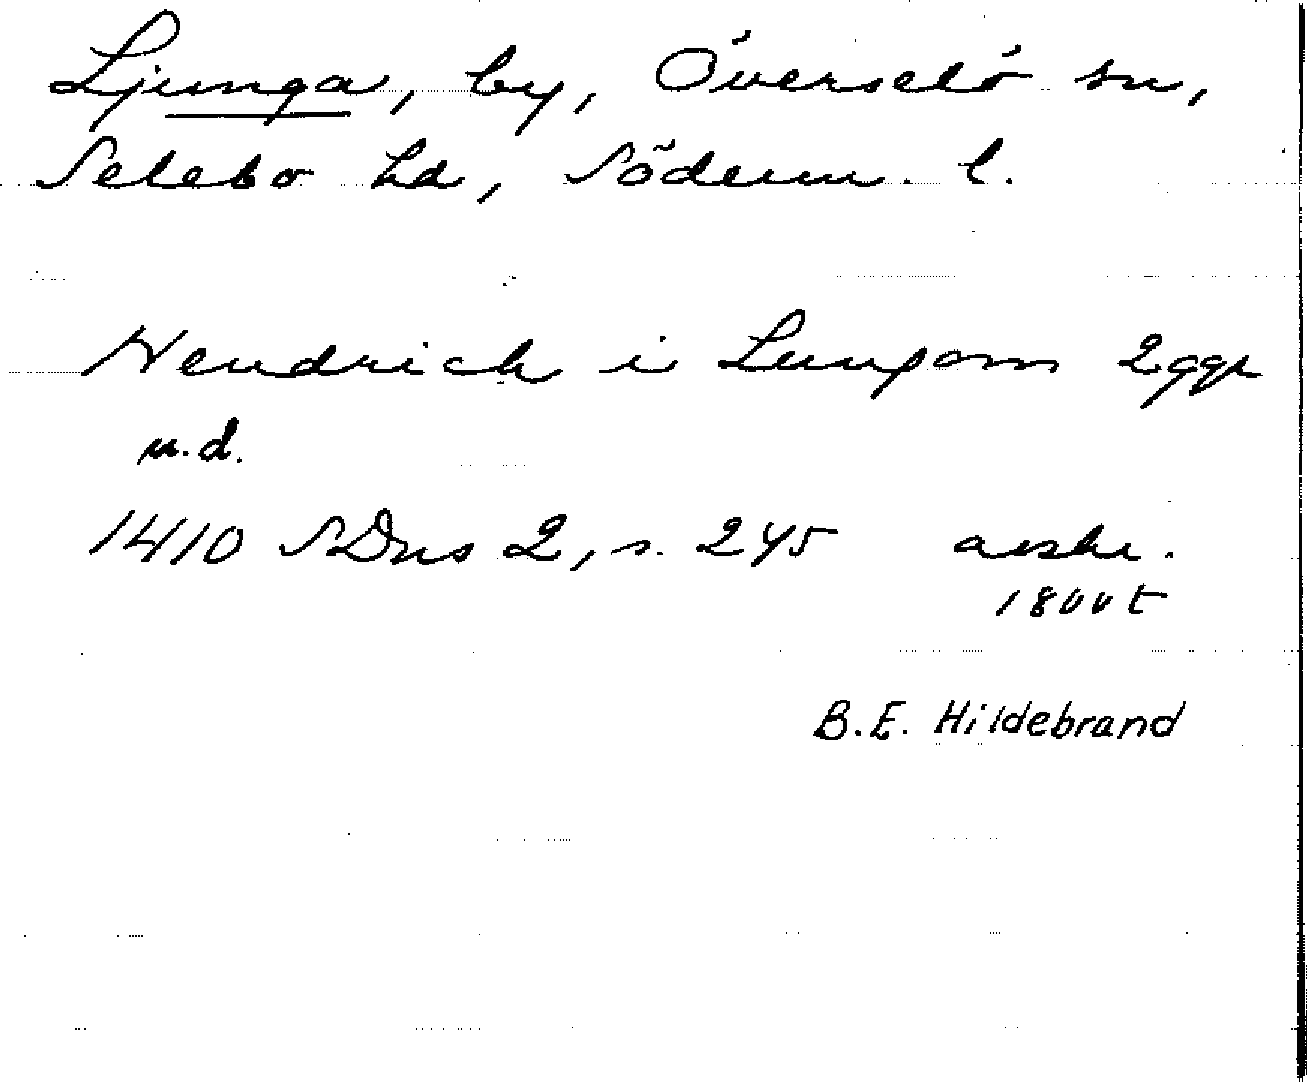 Ljunga, by, Överselö sn,
Selebo hd, Söderm. l.
Hendrich i Lungom 2 ggr
u.d.
1410 SDns 2, s. 245 avskr.
1800t
B.E. Hildebrand